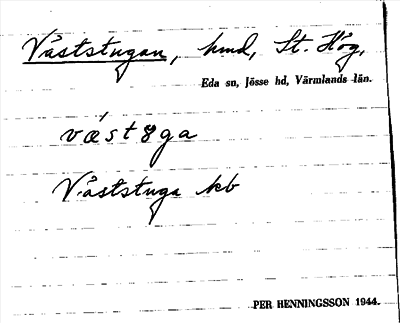 Våststugan, hmd, St. Hög,
Eda sn, Jösse hd, Värmlands län.
vǽstȣga
Våststuga kb
PER HENNINGSSON 1944.